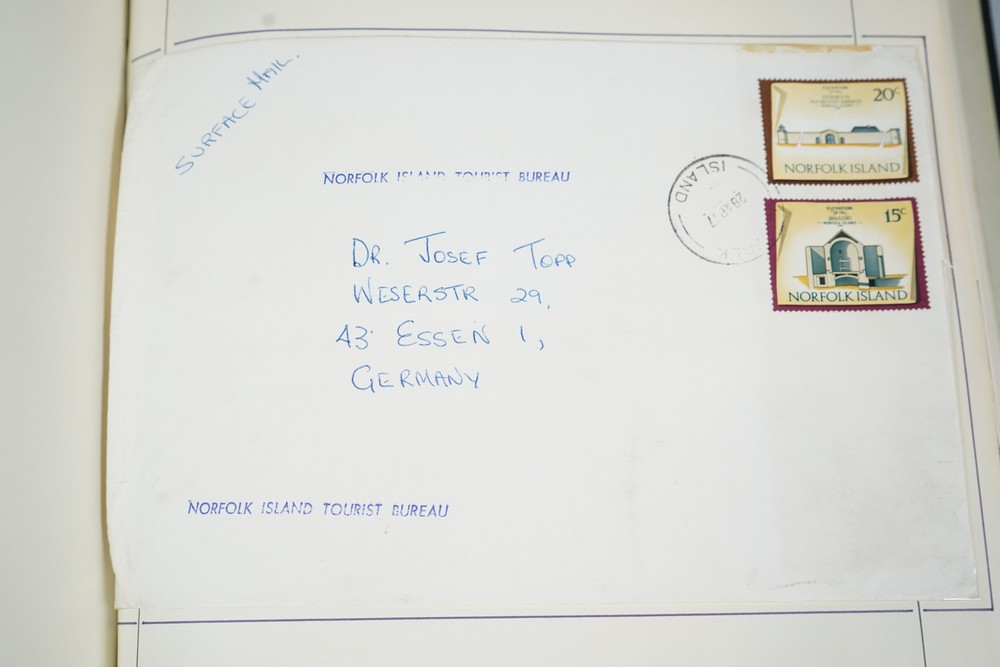 SURFACE MAIL.
NORFOLK ISLAND TOURIST BUREAU
20c
NORFOLK ISLAND
ISLAND
15c
NORFOLK ISLAND
DR. JOSEF TOPP
WESERSTR 29,
43 ESSEN 1,
GERMANY
NORFOLK ISLAND TOURIST BUREAU